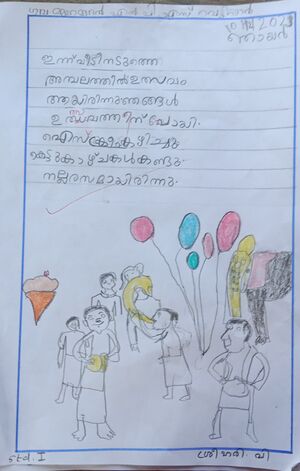 10 ഫെബ്ര 2023
ഞായർ
ഇന്ന് വീടിനടുത്തെ
അമ്പലത്തിൽ ഉത്സവം
ആയിരിന്നു ഞങ്ങൾ
ഉത്സവത്തിന് പോയി.
ഐസ്ക്രീം കഴിച്ചു
കെട്ടുകാഴ്ചകൾ കണ്ടു
നല്ല രസമായിരിന്നു.
Std. I
ശ്രീഹരി. വി